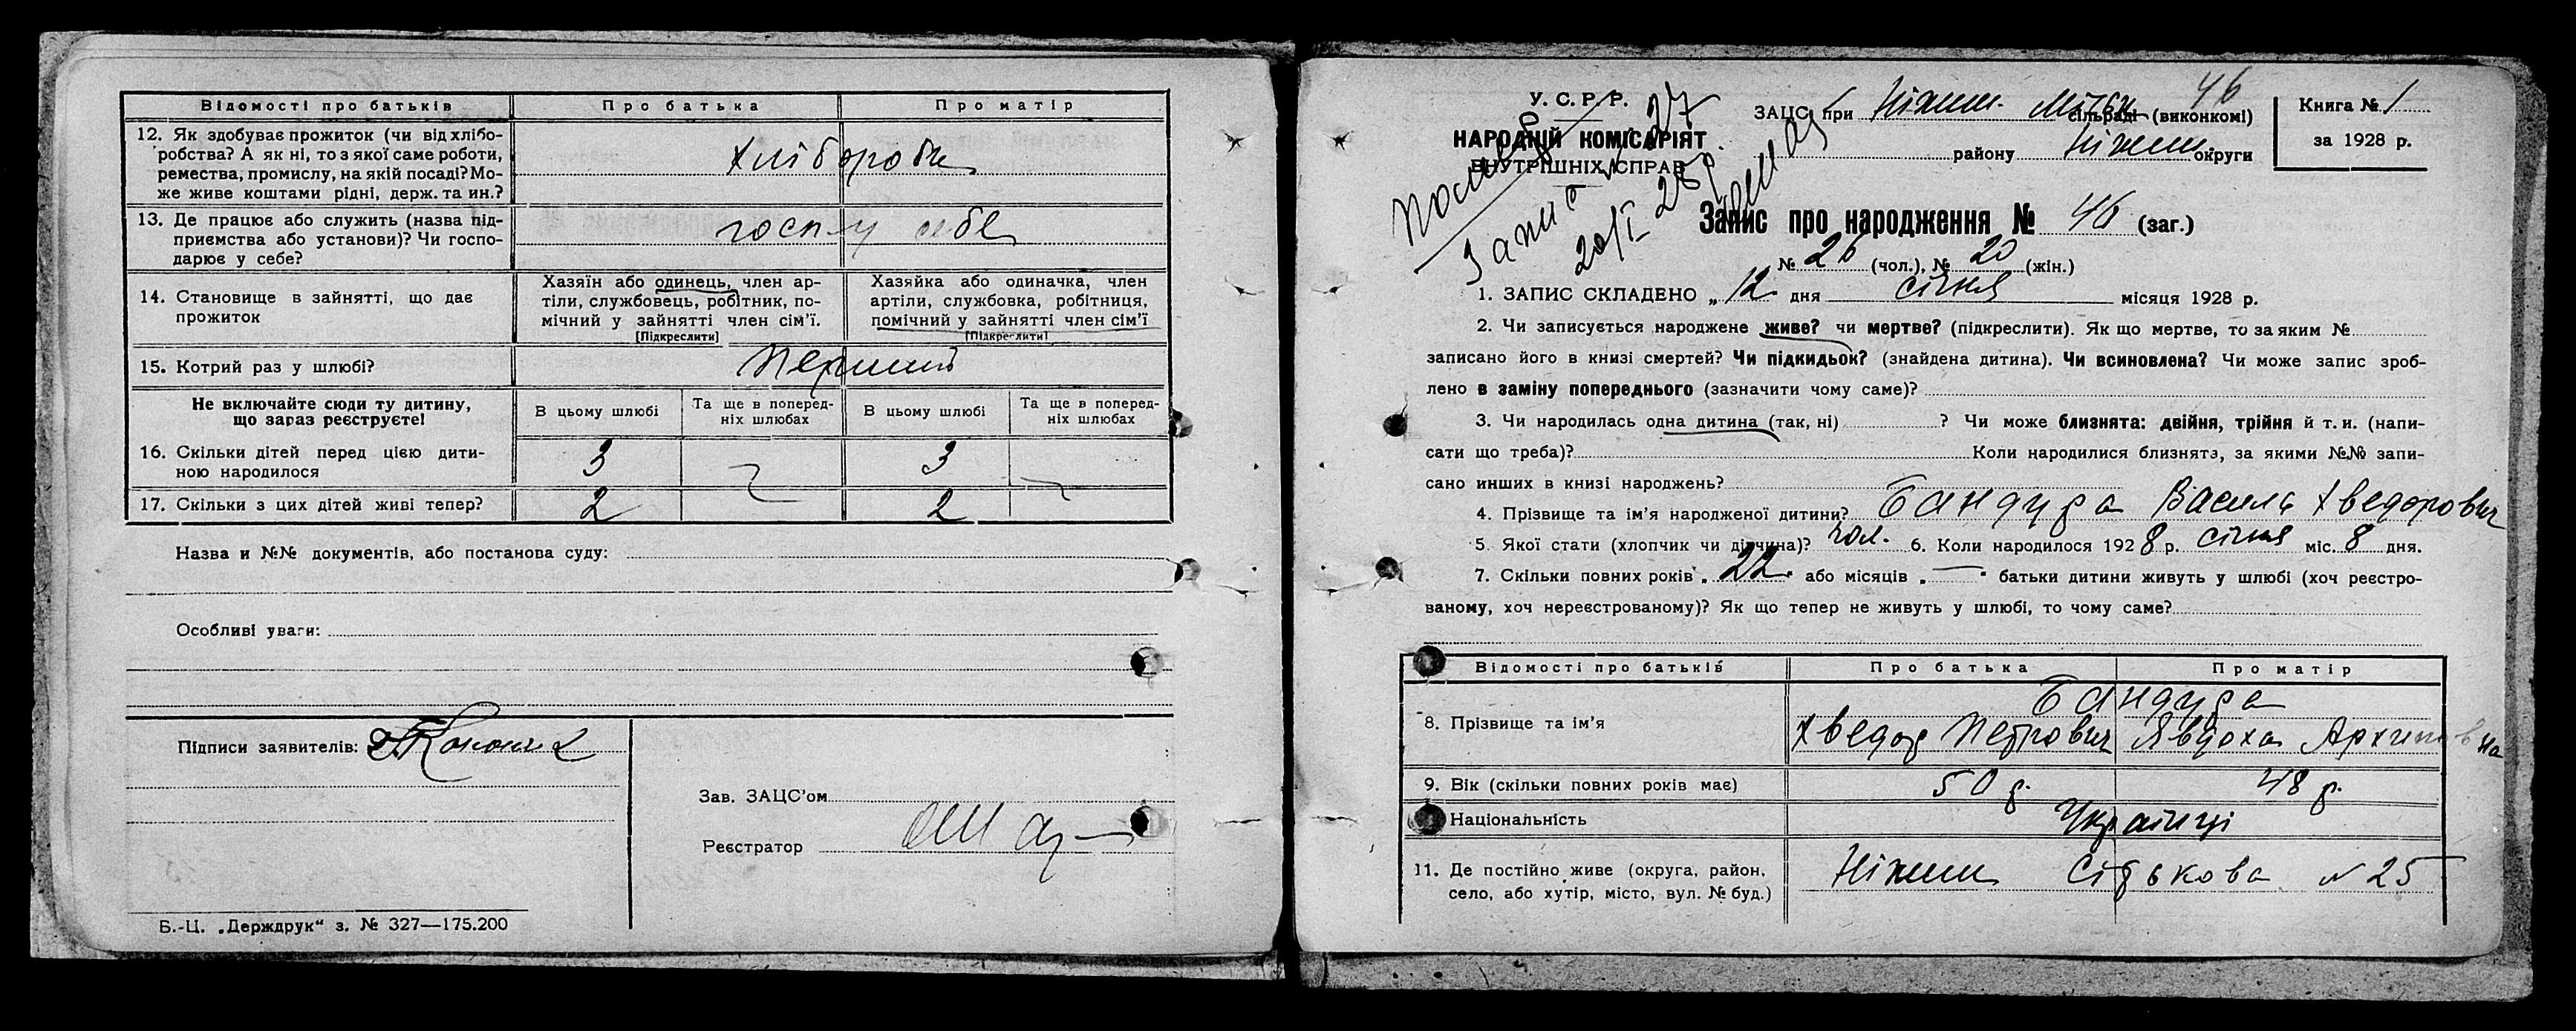 Відомості про батьків Про батька Про матір
12. Як здобуває прожиток (чи від хлібо-
робства? А як ні, то з якої саме роботи,
ремества, промислу, на якій посаді? Мо-
же живе коштами рідні, держ. та ин.?
хлібороби
13. Де працює або служить (назва під-
приємства або установи)? Чи госпо-
дарює у себе?
госп у себе
14. Становище в зайнятті, що дає
прожиток
Хазяїн або одинець, член ар-
тілі, службовець, робітник, по-
мічний у зайнятті член сім'ї.
[Підкреслити]
Хазяйка або одиначка, член
артілі, службовка, робітниця,
помічний у зайнятті член сім'ї
[Підкреслити]
15. Котрий раз у шлюбі?
Перший
Не включайте сюди ту дитину,
що зараз реєструєте!
В цьому шлюбі
Та ще в поперед-
ніх шлюбах
В цьому шлюбі
Та ще в поперед-
ніх шлюбах
16. Скільки дітей перед цією дити-
ною народилося
3 3
17. Скільки з цих дітей живі тепер? 2 2
Назва и №№ документів, або постанова суду:
Особливі уваги:
Підписи заявителів:
Зав. ЗАЦС'ом
Реєстратор
Б.-Ц. „Держдрук“ з. № 327—175.200
46
У. С. Р. Р.
НАРОДНІЙ КОМІСАРІЯТ
ВНУТРІШНІХ СПРАВ
27
20/I 28 р.
ЗАЦС при Ніжин. сільраді (виконкомі)
району Ніжин. округи
Книга № 1
за 1928 р.
Запис про народження № 46 (заг.)
№ 26 (чол.), № 20 (жін.)
1. ЗАПИС СКЛАДЕНО „12 дня січня місяця 1928 р.
2. Чи записується народжене живе? чи мертве? (підкреслити). Як що мертве, то за яким №
записано його в книзі смертей? Чи підкидьок? (знайдена дитина). Чи всиновлена? Чи може запис зроб-
лено в заміну попереднього (зазначити чому саме)?
3. Чи народилась одна дитина (так, ні) ? Чи може близнята: двійня, трійня й т. и. (напи-
сати що треба)? Коли народилися близнята, за якими №№ запи-
сано инших в книзі народжень?
4. Прізвище та ім'я народженої дитини? Бандура Василь Хведорович
5. Якої стати (хлопчик чи дівчина)? чол. 6. Коли народилося 1928 р. січня міс. 8 дня.
7. Скільки повних років „ 22 “ або місяців „ — “ батьки дитини живуть у шлюбі (хоч реєстро-
ваному, хоч нереєстрованому)? Як що тепер не живуть у шлюбі, то чому саме?
Відомості про батьків Про батька Про матір
8. Прізвище та ім'я
Бандура
Хведор Петрович Явдоха Архиповна
9. Вік (скільки повних років має) 50 р. 48 р.
Національність Українці
11. Де постійно живе (округа, район,
село, або хутір, місто, вул. № буд.)
Ніжин № 25